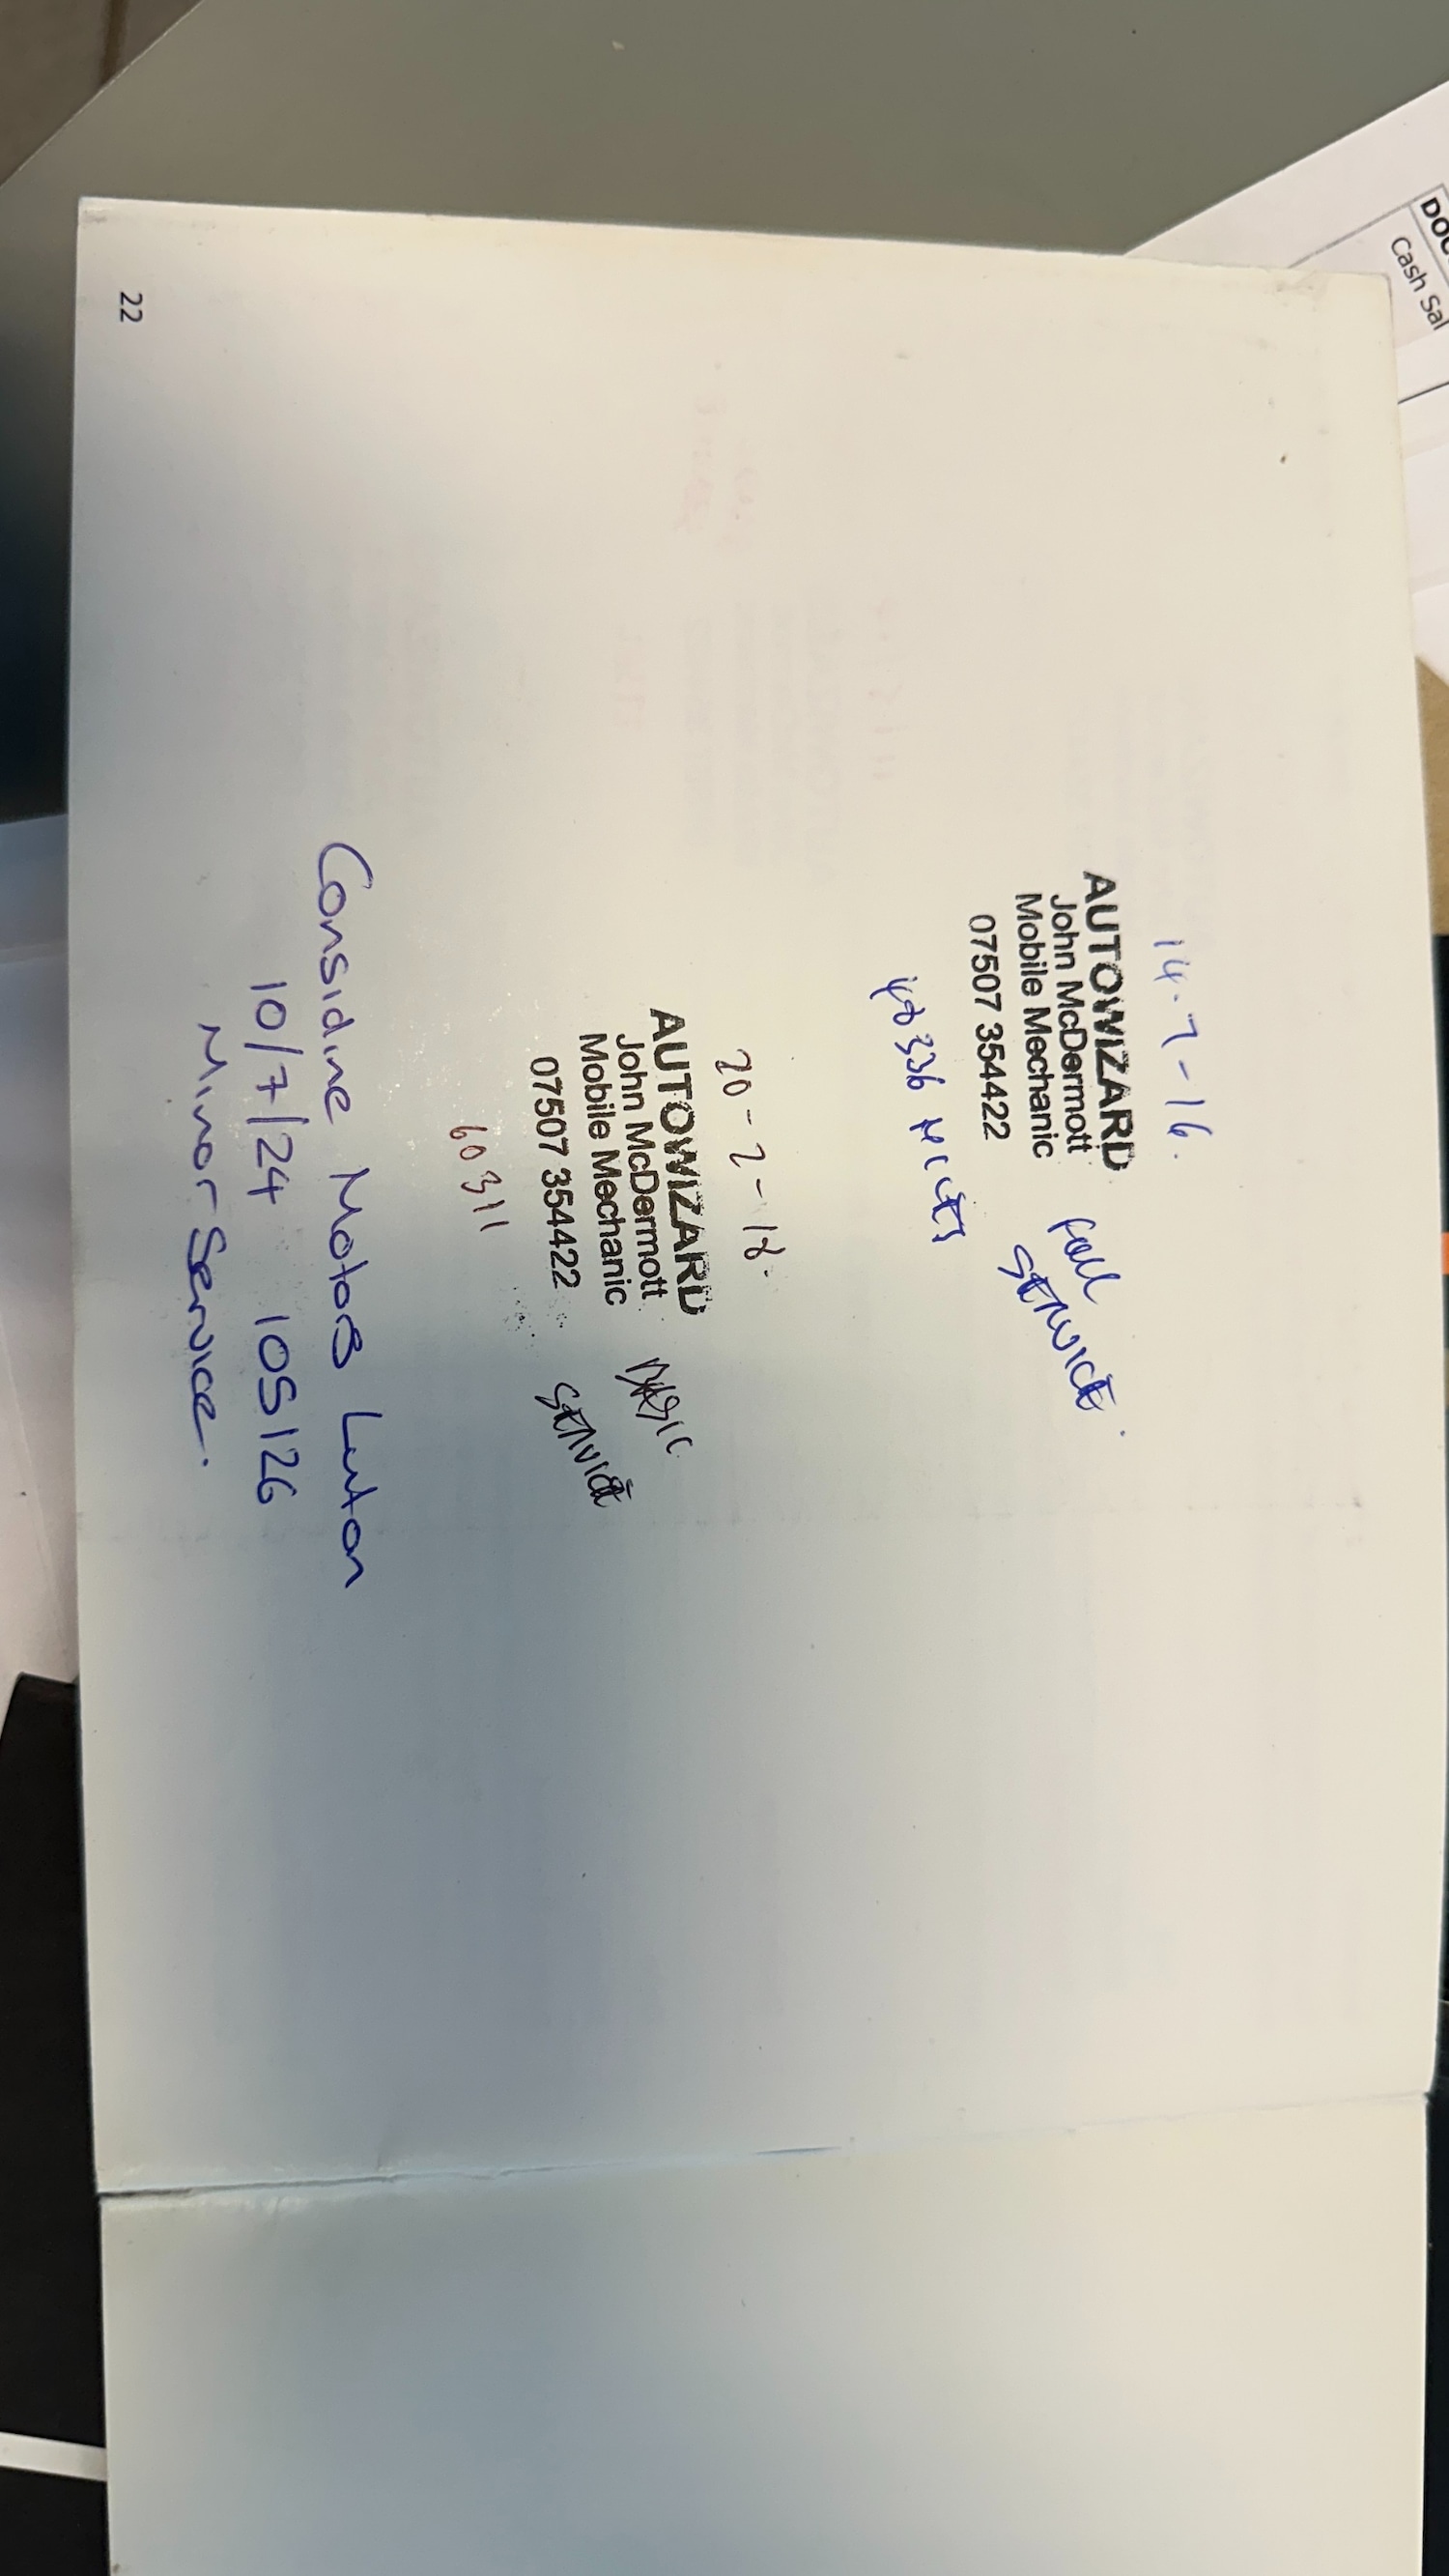 14-7-16.
AUTOWIZARD
John McDermott
Mobile Mechanic
07507 354422
Full
SERVICE.
336 MILES
20-2-18.
AUTOWIZARD
John McDermott
Mobile Mechanic
07507 354422
BASIC
SERVICE
60311
Considine Motors Luton
10/7/24 105126
Minor Service.
22
Cash Sal